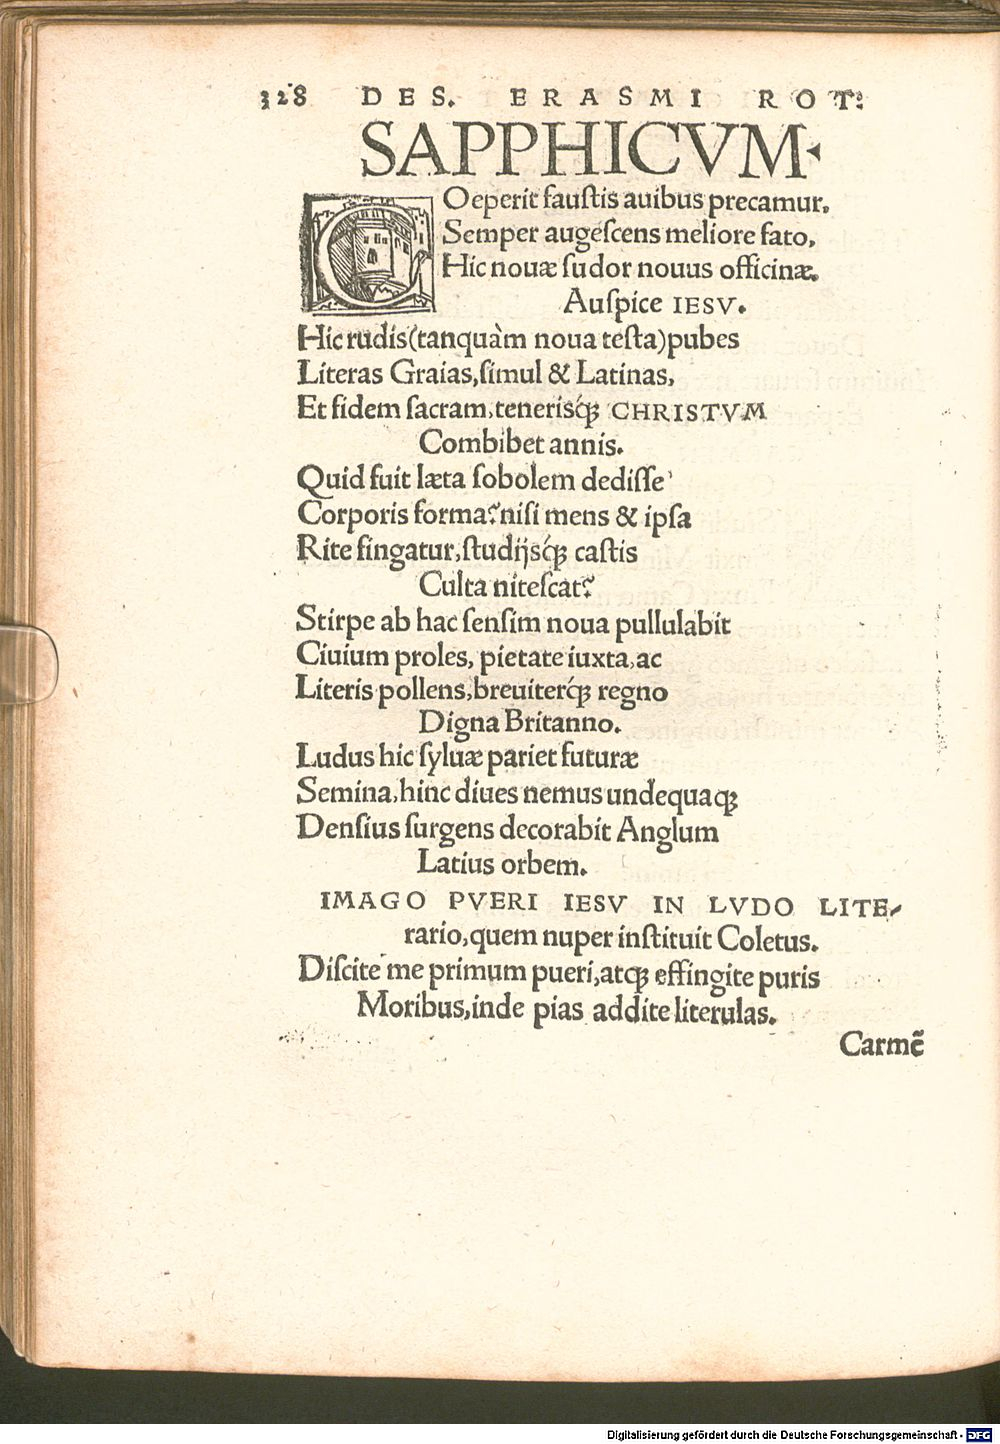 328 DES. ERASMI ROT:
SAPPHICVM.
COeperit fauſtis auibus precamur,
Semper augeſcens meliore fato,
Hic nouæ ſudor nouus officinæ,
Auſpice IESV.
Hic rudis(tanquàm noua teſta)pubes
Literas Graias,ſimul & Latinas,
Et fidem ſacram,teneriſq́; CHRISTVM
Combibet annis.
Quid fuit læta ſobolem dediſſe
Corporis forma?niſi mens & ipſa
Rite fingatur,ſtudijſq́; caſtis
Culta niteſcat?
Stirpe ab hac ſenſim noua pullulabit
Ciuium proles, pietate iuxta,ac
Literis pollens,breuiterq́; regno
Digna Britanno.
Ludus hic ſyluæ pariet futuræ
Semina,hinc diues nemus undequaq;
Denſius ſurgens decorabit Anglum
Latius orbem.
IMAGO PVERI IESV IN LVDO LITE-
rario,quem nuper inſtituit Coletus.
Diſcite me primum pueri,atq; effingite puris
Moribus,inde pias addite literulas.
Carmẽ
Digitalisierung gefördert durch die Deutsche Forschungsgemeinschaft - DFG